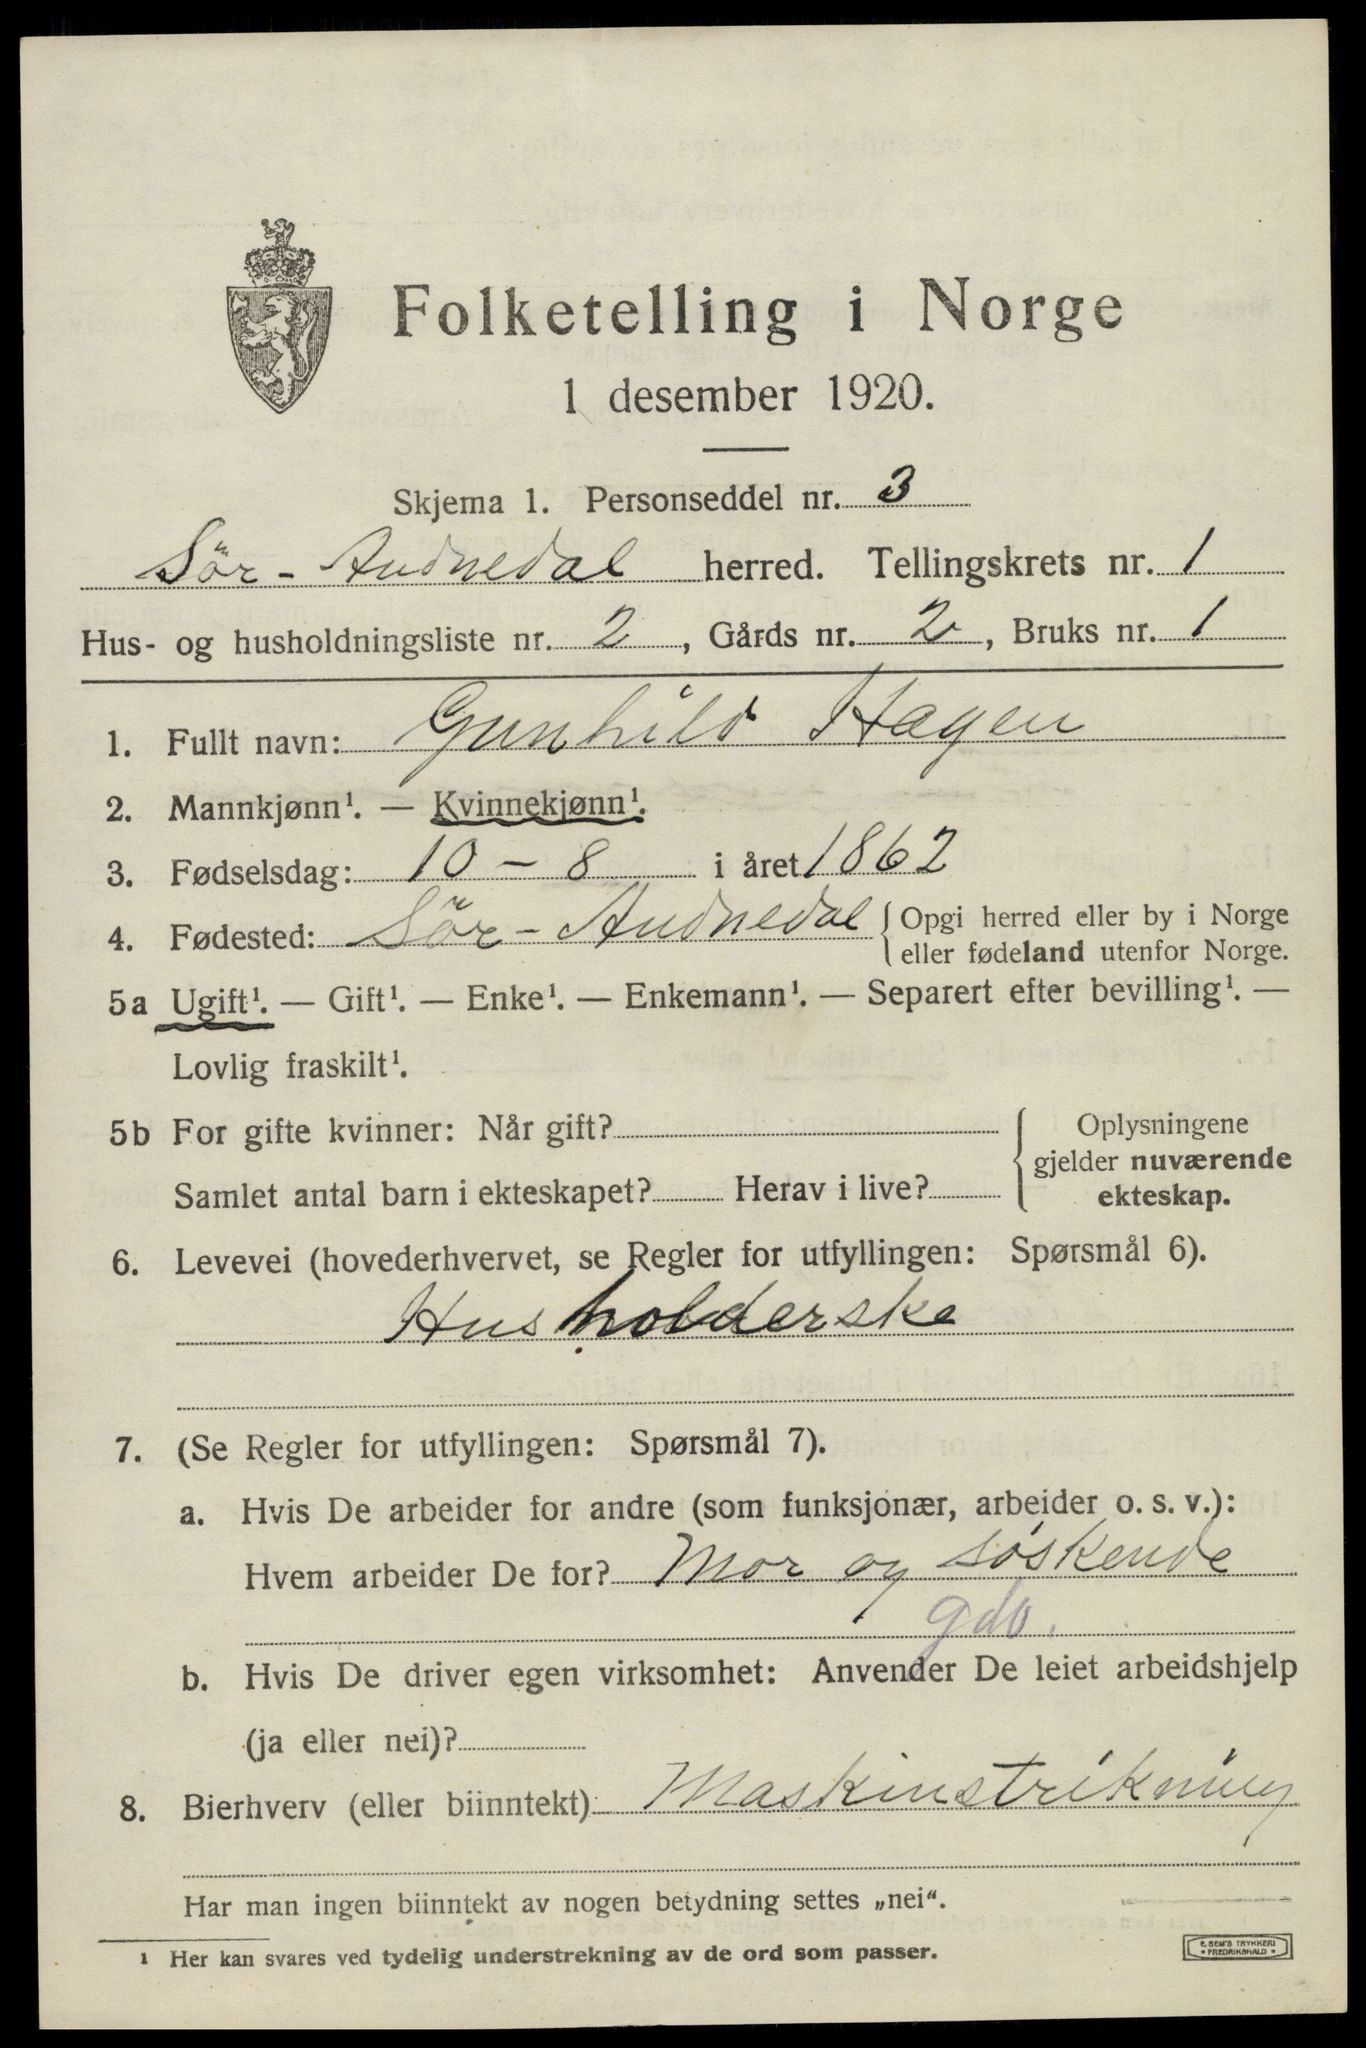 Folketelling i Norge
1 desember 1920.
Skjema 1. Personseddel nr. 3
Sör-Audnedal herred. Tellingskrets nr. 1
Hus- og husholdningsliste nr. 2, Gårds nr. 2, Bruks nr. 1
1. Fullt navn: Gunhild Hagen
2. Mannkjønn¹. — Kvinnekjønn¹.
3. Fødselsdag: 10 - 8 i året 1862
4. Fødested: Sör-Audnedal { Opgi herred eller by i Norge
eller fødeland utenfor Norge.
5a Ugift¹. — Gift¹. — Enke¹. — Enkemann¹. — Separert efter bevilling¹. —
Lovlig fraskilt¹.
5b For gifte kvinner: Når gift?
Samlet antal barn i ekteskapet? Herav i live?
Oplysningene
gjelder nuværende
ekteskap.
6. Levevei (hovederhvervet, se Regler for utfyllingen: Spørsmål 6).
Husholderske
7. (Se Regler for utfyllingen: Spørsmål 7).
a. Hvis De arbeider for andre (som funksjonær, arbeider o. s. v.):
Hvem arbeider De for? Mor og søskende
gdb.
b. Hvis De driver egen virksomhet: Anvender De leiet arbeidshjelp
(ja eller nei)?
8. Bierhverv (eller biinntekt) Maskinstrikning
Har man ingen biinntekt av nogen betydning settes „nei“.
¹ Her kan svares ved tydelig understrekning av de ord som passer.
E. SEM'S TRYKKERI
FREDRIKSHALD